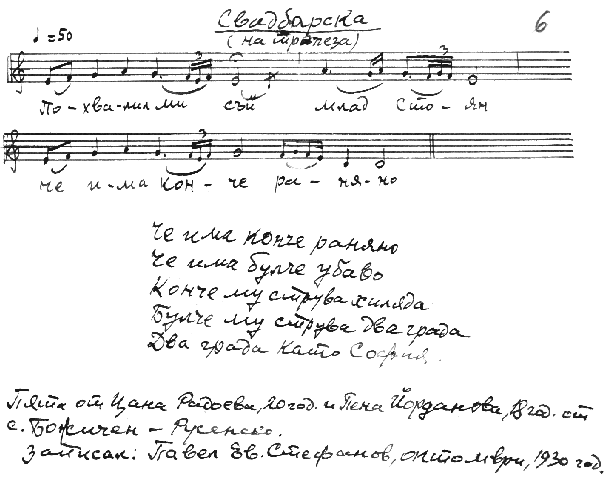 Свадбарска
6
(на трапеза)
♩ = 50
3 3
По-хва-лил ми съй млад Сто-ян
3
че и-ма кон-че ра-ня-но
Че има конче раняно
Че има булче убаво
Конче му струва хиляда
Булче му струва два града
Два града като София.
Пята от Цана Радоева, 20 год. и Пена Йорданова, 18 год. от
с. Божичен - Русенско.
Записал: Павел Ев. Стефанов, октомври, 1930 год.